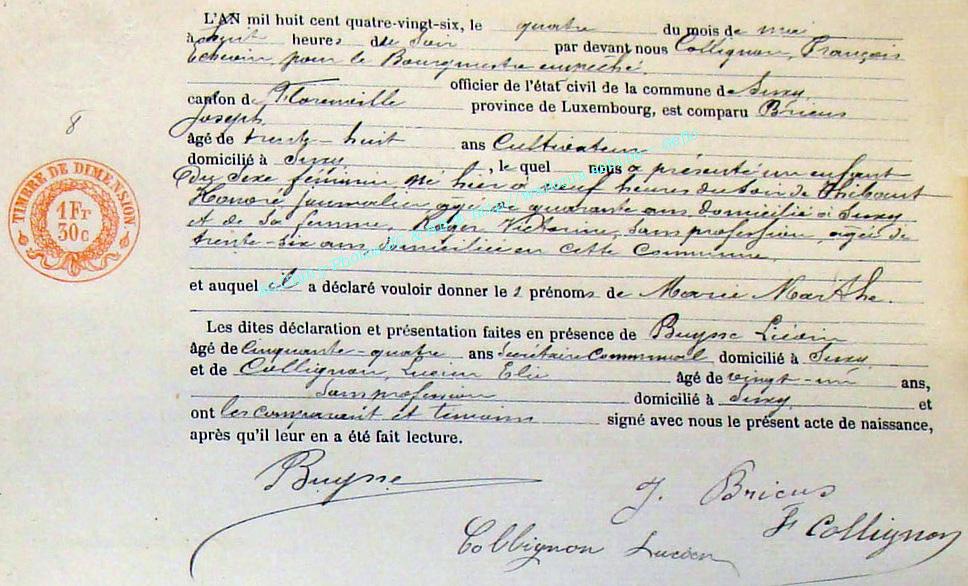 L'AN mil huit cent quatre-vingt-six, le quatre du mois de mai
à huit heures du soir par devant nous Collignon, François
Echevin, pour le Bourgmestre empêché,
officier de l'état civil de la commune de Suxy,
canton de Florenville province de Luxembourg, est comparu Bricus
Joseph,
8
âgé de trente-huit ans Cultivateur
domicilié à Suxy, le quel nous a présenté un enfant
du sexe féminin né hier à neuf heures du soir de Thibaut
Honoré journalier âgé de quarante ans domicilié à Suxy
et de sa femme, Roger Victorine, sans profession, âgée de
trente-six ans domiciliée en cette commune,
et auquel il a déclaré vouloir donner le 2 prénoms de Marie Marthe.
Les dites déclaration et présentation faites en présence de Buysse Liévin
âgé de cinquante-quatre ans Secrétaire Communal domicilié à Suxy,
et de Collignon, Lucien Elie âgé de vingt-un ans,
sans profession domicilié à Suxy, et
ont les comparant et temoins signé avec nous le présent acte de naissance,
après qu'il leur en a été fait lecture.
Buysse
J. Bricus
F Collignon
Collignon Lucien
TIMBRE DE DIMENSION
1 Fr
30 c